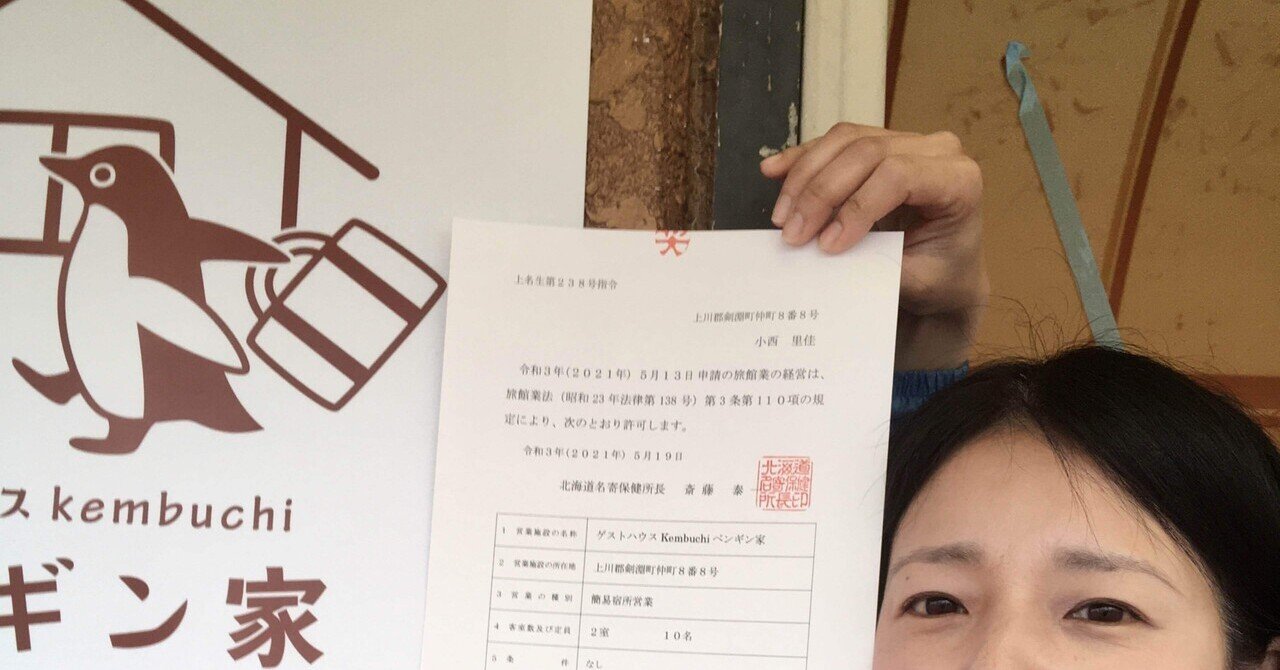 ス kembuchi
ギン家
上名生第238号指令
上川郡剣淵町仲町8番8号
小西 里佳
令和3年(2021年) 5月13日申請の旅館業の経営は、
旅館業法 (昭和23年法律第138号) 第3条第110項の規
定により、次のとおり許可します。
令和3年(2021年) 5月19日
北海道名寄保健所長 斎藤 泰
北海道
名寄保健
所長印
1 営業施設の名称 ゲストハウス Kembuchi ペンギン家
2 営業施設の所在地 上川郡剣淵町仲町8番8号
3 営業の種別 簡易宿所営業
4 客室数及び定員 2室 10名
5 条件 なし